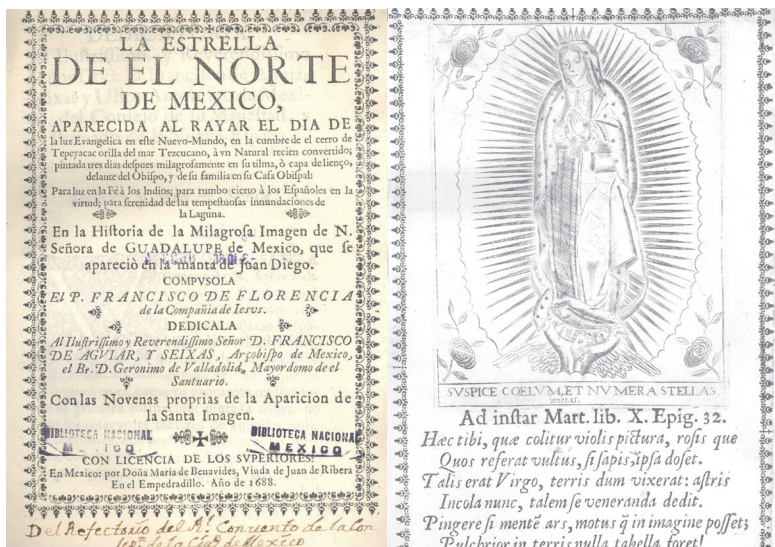 LA ESTRELLA
DE EL NORTE
DE MEXICO,
APARECIDA AL RAYAR EL DIA DE
la luz Evangelica en este Nuevo-Mundo, en la cumbre de el cerro de
Tepeyacac orilla del mar Tezcucano, à vn Natural recien convertido;
pintada tres dias despues milagrosamente en su tilma, ò capa de lienço,
delante del Obispo, y de su familia en su Casa Obispal:
Para luz en la Fè à los Indios; para rumbo cierto à los Españoles en la
virtud; para serenidad de las tempestuosas innundaciones de
la Laguna.
En la Historia de la Milagrosa Imagen de N.
Señora de GUADALUPE de Mexico, que se
apareciò en la manta de Juan Diego.
COMPVSOLA
El P. FRANCISCO DE FLORENCIA
de la Compañia de Iesvs.
DEDICALA
Al Ilustrissimo y Reverendissimo Señor D. FRANCISCO
DE AGVIAR, Y SEIXAS, Arçobispo de Mexico,
el Br. D. Geronimo de Valladolid, Mayordomo de el
Santuario.
Con las Novenas proprias de la Aparicion de
la Santa Imagen.
BIBLIOTECA NACIONAL
MEXICO
BIBLIOTECA NACIONAL
MEXICO
CON LICENCIA DE LOS SVPERIORES:
En Mexico: por Doña Maria de Benavides, Viuda de Juan de Ribera
En el Empedradillo. Año de 1688.
Del Refectorio del Rl. Convento de la Con
cepn. de la Ciud. de Mexico
SVSPICE COELVM, ET NVMERA STELLAS
Ad instar Mart. lib. X. Epig. 32.
Hæc tibi, quæ colitur violis pictura, rosis que
Quos referat vultus, si sapis, ipsa doset.
Talis erat Virgo, terris dum vixerat: astris
Incola nunc, talem se veneranda dedit.
Pingere si mentē ars, motus q̄ in imagine posset;
Pulchrior in terris nulla tabella foret!